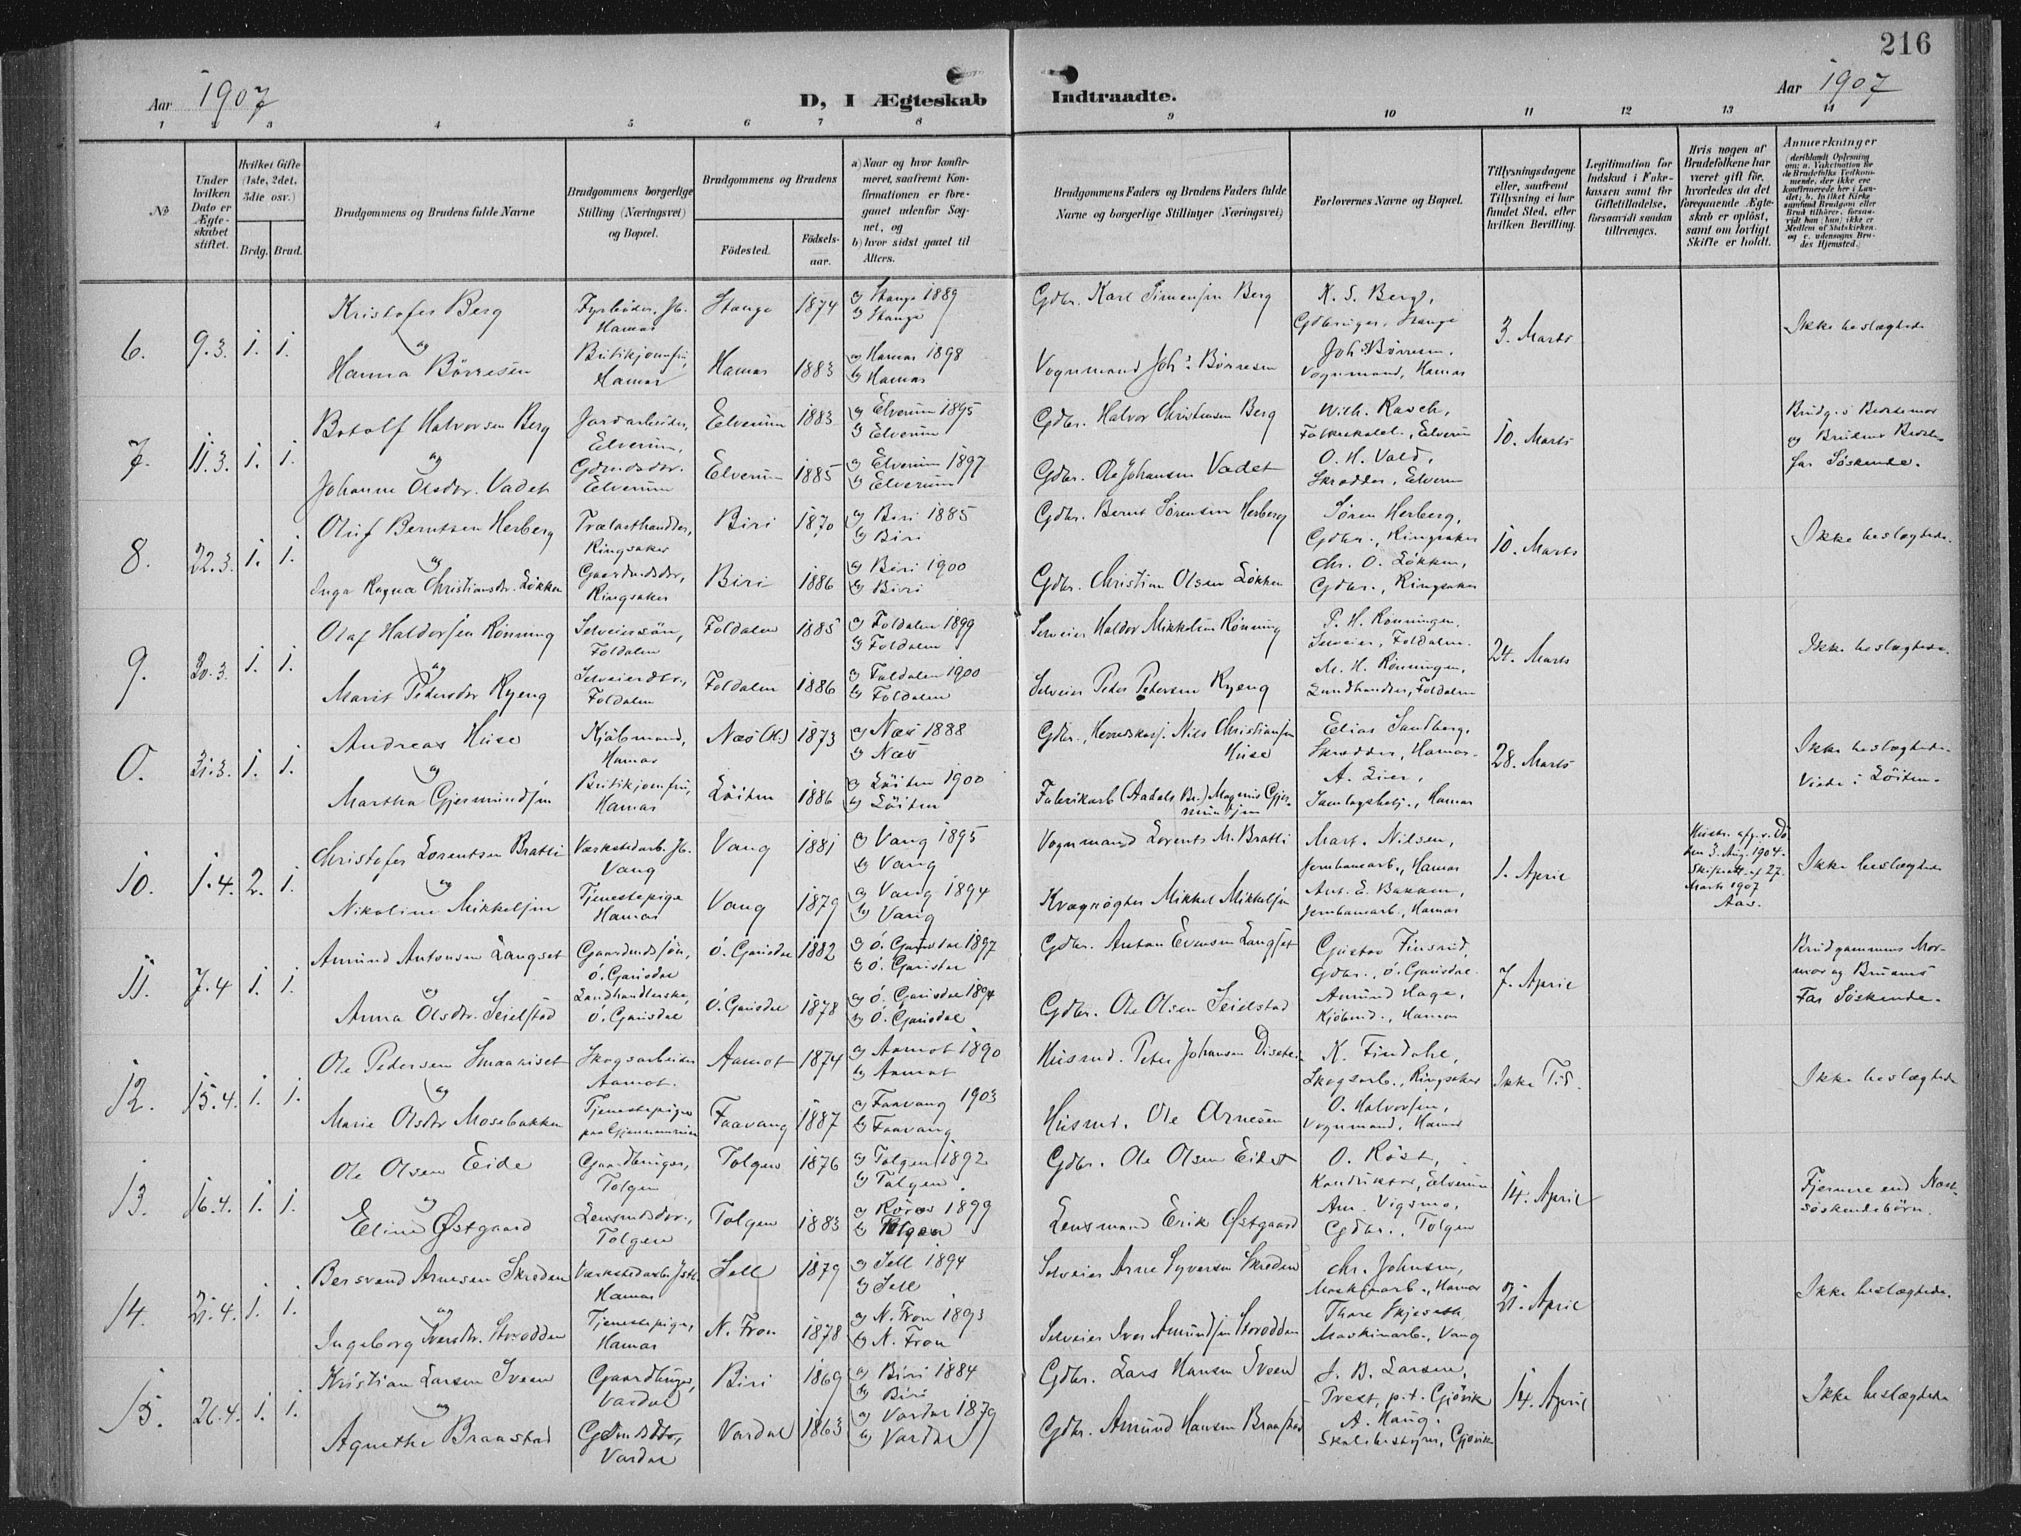 216
Aar 1907
D, I Ægteskab Indtraadte.
Aar 1907
1 2 3 4 5 6 7 8 9 10 11 12 13 14
No
Under hvilken Dato er Ægteskabet stiftet.
Hvilket Gifte (1ste, 2det, 3die osv.)
Brdg. Brud.
Brudgommens og Brudens fulde Navne
Brudgommens borgerlige Stilling (Næringsvei) og Bopæl.
Brudgommens og Brudens
Födested.
Födselsaar.
a) Naar og hvor konfirmeret, saafremt Konfirmationen er foregaaet udenfor Sognet, og
b) hvor sidst gaaet til Alters.
Brudgommens Faders og Brudens Faders fulde Navne og borgerlige Stillinger (Næringsvei)
Forlovernes Navne og Bopæl.
Tillysningsdagene eller, saafremt Tillysning ei har fundet Sted, efter hvilken Bevilling.
Legitimation for Indskud i Enkekassen samt for Giftetilladelse, forsaavidt saadan tiltrænges.
Hvis nogen af Brudefolkene har været gift för, hvorledes da det foregaaende Ægteskab er oplöst, samt om lovligt Skifte er holdt.
Anmærkninger
6. 9.3. 1. 1.
Kristofer Berg
og
Hanna Börresen
Fyrböder, Jb. Hamar
Butikjomfru, Hamar
Stange 1874 a) Stange 1889 b) Stange
Hamar 1883 a) Hamar 1898 b) Hamar
Gdbr. Karl Simensen Berg
Vognmand Johs. Börresen
K. S. Berg, Gdbruger, Stange
Johs. Börresen, Vognmand, Hamar
3. Marts
Ikke beslægtede
7. 11.3. 1. 1.
Botolf Halvorsen Berg
og
Johanne Olsdtr. Vadet
Jordarbeider, Elverum,
Gdmdsdtr. Elverum
Elverum 1883 a) Elverum 1895 b) Elverum
Elverum 1885 a) Elverum 1897 b) Elverum
Gdbr. Halvor Christensen Berg
Gdbr. Ole Johansen Vadet
Wilh. Rasch, Folkeskolel., Elverum
O. H. Vold, Skrædder, Elverum
10. Marts
Brudg.s Bestemor og Brudens Bestefar Søskende.
8. 22.3. 1. 1.
Oluf Berntsen Herberg
og
Inga Ragna Christiansdtr. Løkken
Trælasthandler, Ringsaker
Gaardmdsdtr, Ringsaker
Biri 1870 a) Biri 1885 b) Biri
Biri 1886 a) Biri 1900 b) Biri
Gdbr. Bernt Sørensen Herberg
Gdbr. Christian Olsen Løkken
Søren Herberg, Gdbr., Ringsaker
Chr. O. Løkken, Gdbr., Ringsaker
10. Marts
Ikke beslægtede.
9. 30.3. 1. 1.
Olaf Haldorsen Rønning
og
Marit Pedersdtr Ryeng
Selveiersøn, Foldalen
Selveierdtr, Foldalen
Foldalen 1885 a) Foldalen 1899 b) Foldalen
Foldalen 1886 a) Foldalen 1900 b) Foldalen
Selveier Haldor Mikkelsen Rønning
Selveier Peder Pedersen Ryeng
P. H. Rønningen, Selveier, Foldalen.
M. H. Rønningen, Landhandler, Foldalen
24. Marts
Ikke beslægtede.
0. 31.3. 1. 1.
Andreas Huse
og
Martha Gjermundsen
Kjöbmand, Hamar
Butikjomfru, Hamar
Næs (H.) 1873 a) Næs 1888 b) Næs
Löiten 1886 a) Löiten 1900 b) Löiten
Gdbr., Herredskass. Nils Christiansen Huse
Fabrikarb (Aadals Br.) Magnus Gjermundsen
Elias Sandberg, Skrædder, Hamar.
A. Lier, Samlagsbetj., Hamar
28. Marts
Ikke beslægtede. Viede i Löiten.
10. 1.4. 2. 1.
Christofer Lorentsen Bratli
og
Nikoline Mikkelsen
Værkstedarb. Jb. Vang
Tjenestepige Hamar
Vang 1881 a) Vang 1895 b) Vang
Vang 1879 a) Vang 1894 b) Vang
Vognmand Lorents M. Bratli
Kvægrögter Mikkel Mikkelsen
Mart. Nilsen, Jernbanearb., Hamar
Ant. E. Bakken, Jernbanearb., Hamar
1. April
Hustr. afg. v. Döden 3. Aug. 1904. Skifteatt. af 27. Marts 1907 Aas.
Ikke beslægtede
11. 7.4 1. 1.
Amund Antonsen Langset
og
Anna Olsdtr. Seielstad
Gaardmdssön, Ö. Gausdal
Landhandlerske, Ö. Gausdal
Ö. Gausdal 1882 a) Ö. Gausdal 1897 b) Ö. Gausdal
Ö. Gausdal 1878 a) Ö. Gausdal 1894 b) Ö. Gausdal
Gdbr. Anton Evensen Langset
Gdbr. Ole Olsen Seielstad
Gustav Finsrud, Gdbr., Ö. Gausdal.
Amund Hage, Kjöbmd., Hamar
7. April
Brudgommens Mormor og Brudens Far Søskende.
12. 15.4. 1. 1.
Ole Pedersen Smaariset
og
Marie Olsdtr Mosebakken
Skogsarbeider Aamot.
Tjenestepige
Aamot 1874 a) Aamot 1890 b) Aamot
Faavang 1887 a) Faavang 1903 b) Faavang
Husmd. Peter Johansen
Husmd. Ole Arnesen
K. Findahl, Skogsarb., Ringsaker
O. Halvorsen, Vognmand, Hamar
Ikke T.S.
Ikke beslægtede
13. 16.4. 1. 1.
Ole Olsen Eide
og
Eline Østgaard
Gaardbruger, Tolgen
Lensmdsdtr., Tolgen
Tolgen 1876 a) Tolgen 1892 b) Tolgen.
Tolgen 1883 a) Röros 1899 b) Tolgen
Gdbr. Ole Olsen Eidet
Lensmand Erik Østgaard
O. Röst, Konduktör, Elverum
Am. Vigsmo, Gdbr., Tolgen
14. April
Fjernere end Næstsöskendebörn.
14. 21.4. 1. 1.
Bersvend Arnesen Skreden
og
Ingeborg Iversdtr. Storodden
Værkstedarb. Jstb. Hamar
Tjenestepige, Hamar
Sell 1879 a) Sell 1894 b) Sell
N. Fron 1878 a) N. Fron 1893 b) N. Fron
Selveier Arne Syversen Skreden
Selveier Iver Amundsen Storodden
Chr. Johnsen, Maskinarb., Hamar
Thore Skjeseth Maskinarb., Vang
21. April
Ikke beslægtede.
15. 26.4. 1. 1.
Kristian Larsen Sveen
og
Agnethe Braastad
Gaardbruger, Vardal
Gdmdsdtr, Vardal
Biri 1869 a) Biri 1884 b) Biri
Vardal 1863 a) Vardal 1879 b) Vardal
Gdbr. Lars Hansen Sveen
Gdbr. Amund Hansen Braastad
J. B. Larsen, Prest, p.t. Gjövik
A. Haug, Skolebestyrer, Gjövik
14. April
Ikke beslægtede